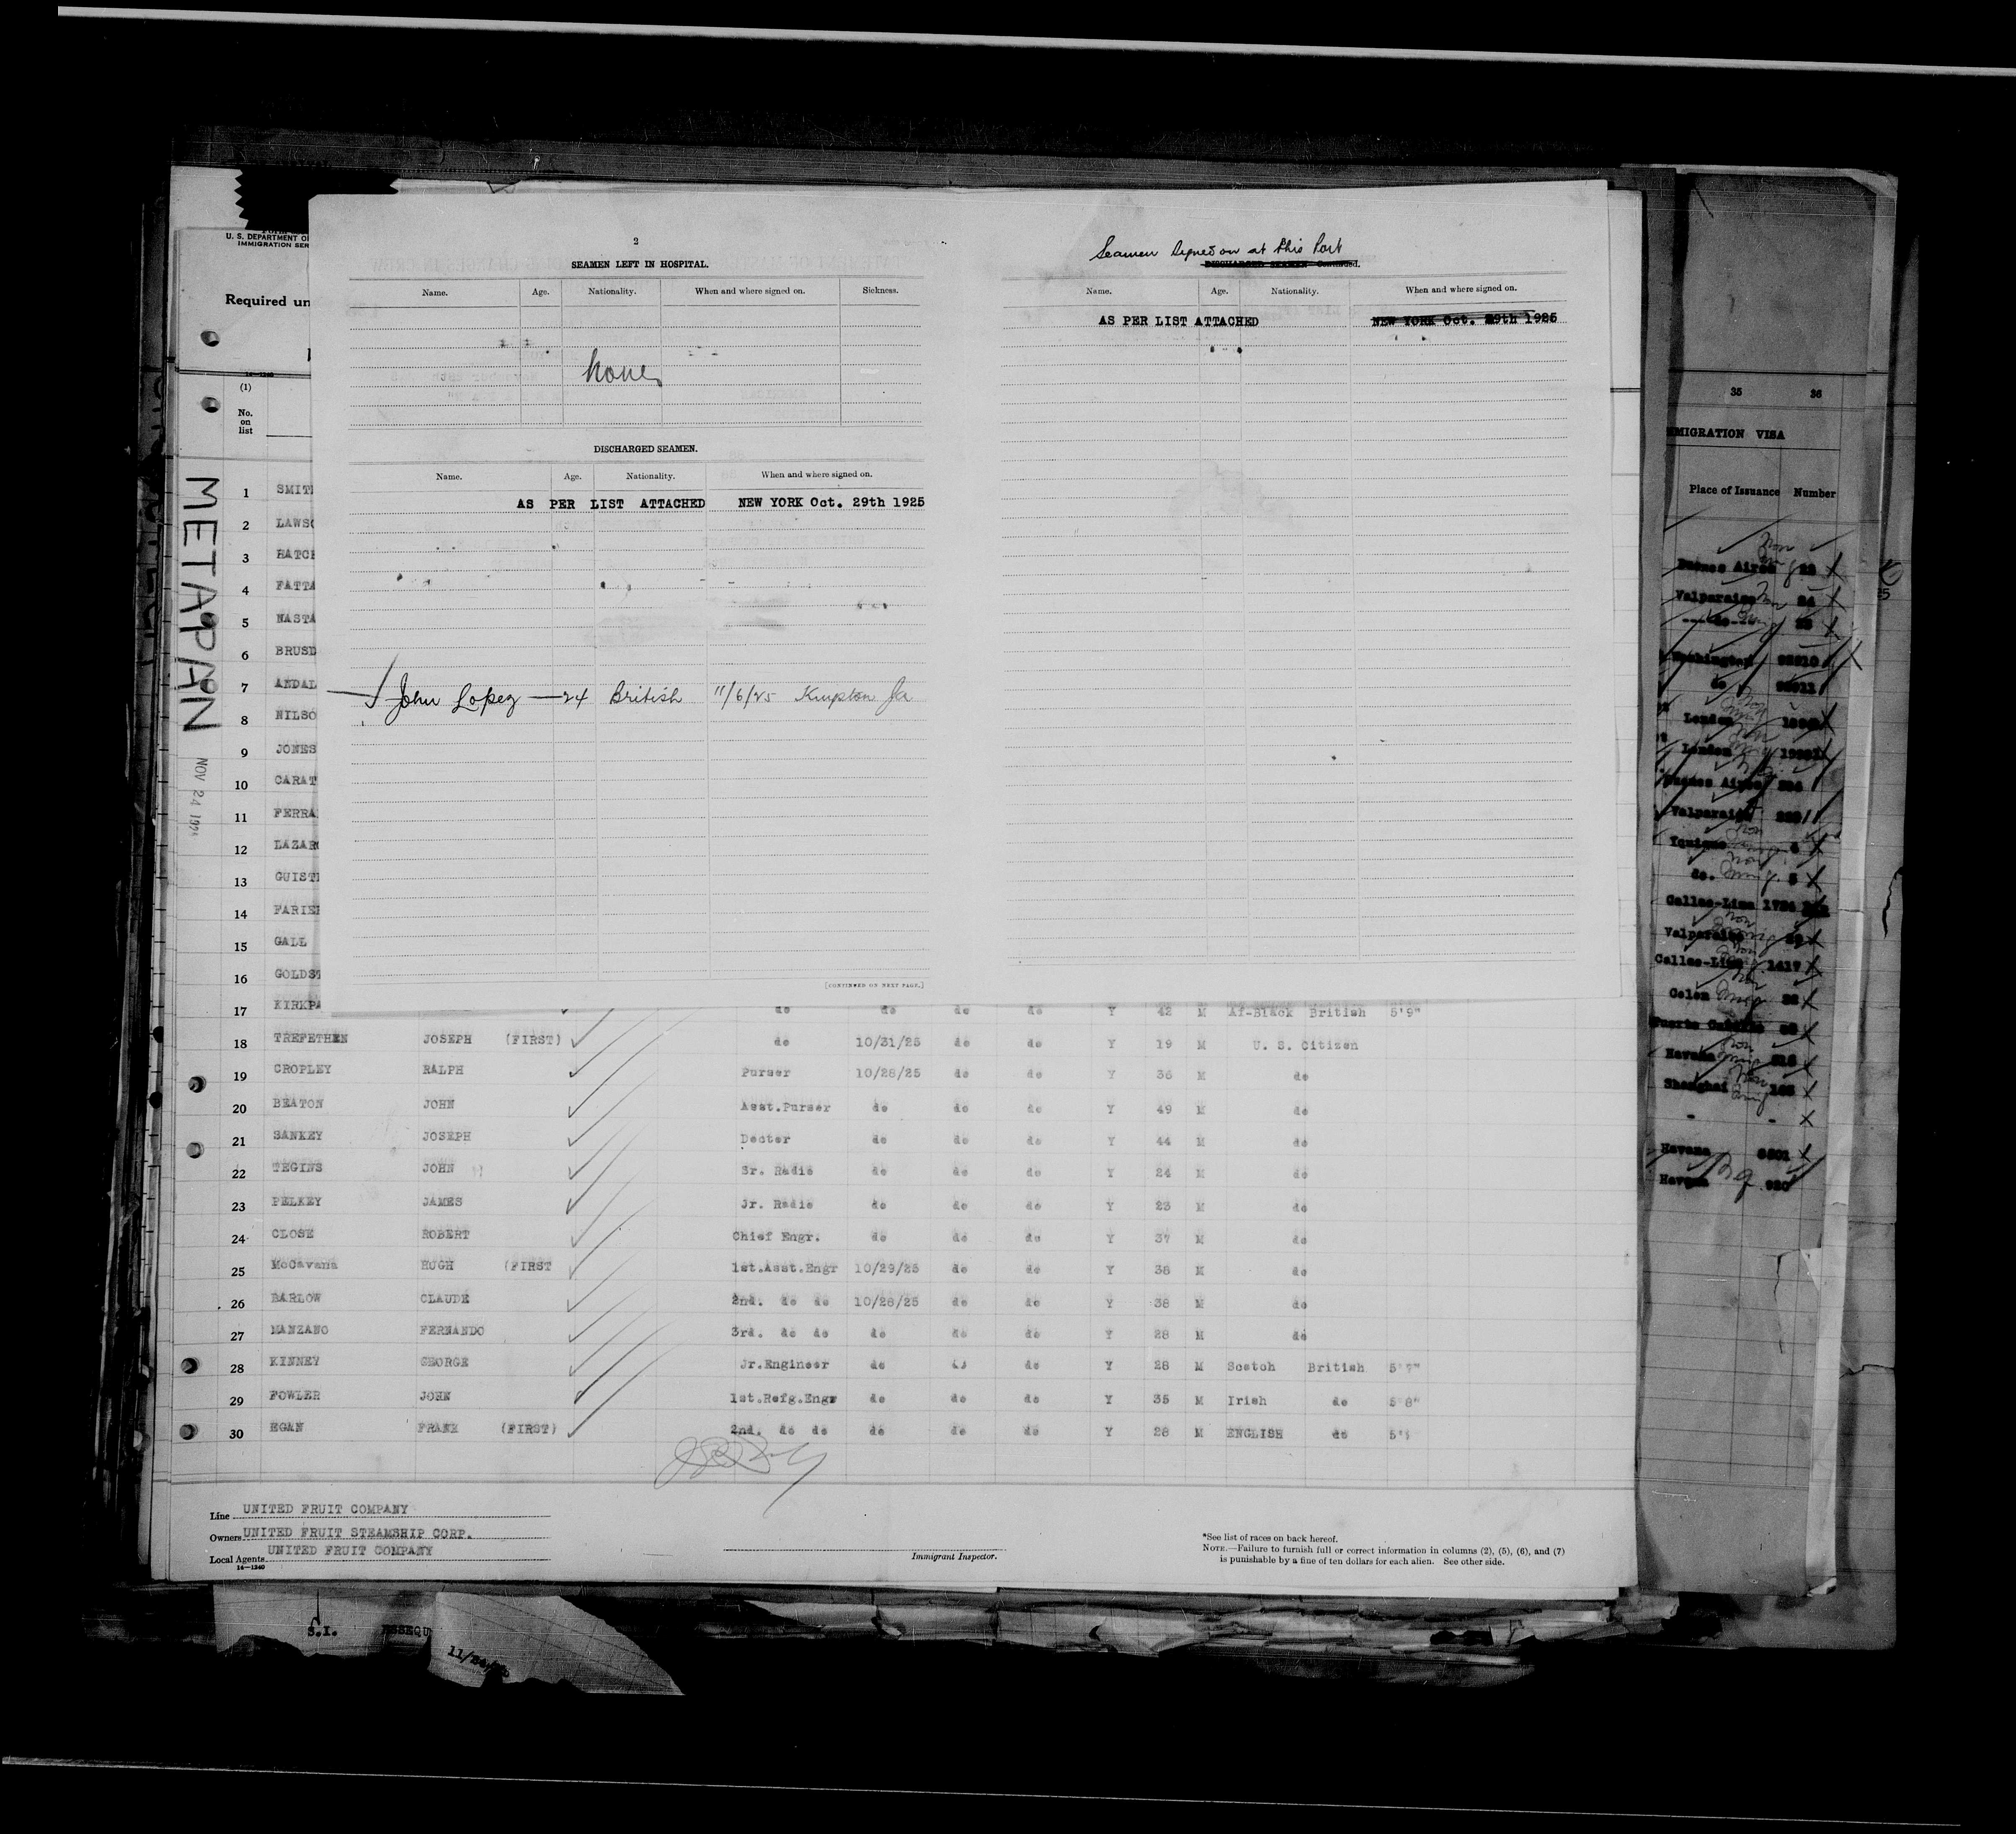 2
SEAMEN LEFT IN HOSPITAL.
Name. Age. Nationality. When and where signed on. Sickness.
None
DISCHARGED SEAMEN.
Name. Age. Nationality. When and where signed on.
AS PER LIST ATTACHED NEW YORK Oct. 29th 1925
John Lopez — 24 British 11/6/25 Kingston Ja
[CONTINUED ON NEXT PAGE.]
Seamen Signed on at this Port
DISCHARGED SEAMEN—Continued.
Name. Age. Nationality. When and where signed on.
AS PER LIST ATTACHED NEW YORK Oct. 29th 1925
U. S. DEPARTMENT O
IMMIGRATION SER
Required un
14—1240
(1)
No.
on
list
METAPAN
NOV 24 192
1 SMIT
2 LAWSO
3 HATCH
4 FATTA
5 NASTA
6 BRUSD
7 ANDAL
8 NILSO
9 JONES
10 CARAT
11 FERRA
12 LAZAR
13 GUIST
14 FARIE
15 GALL
16 GOLDST
17 KIRKPA do do do do Y 42 M Af-Black British 5'9"
18 TREFETHEN JOSEPH (FIRST) do 10/31/25 do do Y 19 M U. S. Citizen
19 CROPLEY RALPH Purser 10/28/25 do do Y 36 M do
20 BEATON JOHN Asst.Purser do do do Y 49 M do
21 SANKEY JOSEPH Doctor do do do Y 44 M do
22 TEGINS JOHN Sr. Radio do do do Y 24 M do
23 PELKEY JAMES Jr. Radio do do do Y 23 M do
24 CLOSE ROBERT Chief Engr. do do do Y 37 M do
25 McCavana HUGH (FIRST 1st.Asst.Engr 10/29/25 do do Y 38 M do
26 BARLOW CLAUDE 2nd. do do 10/28/25 do do Y 38 M do
27 MANZANO FERNANDO 3rd. do do do do do Y 28 M do
28 KINNEY GEORGE Jr.Engineer do do do Y 28 M Scotch British 5'7"
29 FOWLER JOHN 1st.Refg.Engr do do do Y 35 M Irish do 5'8"
30 EGAN FRANK (FIRST) 2nd. do do do do do Y 28 M ENGLISH do 5'
Line UNITED FRUIT COMPANY
Owners UNITED FRUIT STEAMSHIP CORP.
Local Agents UNITED FRUIT COMPANY
14—1240
Immigrant Inspector.
*See list of races on back hereof.
NOTE.—Failure to furnish full or correct information in columns (2), (5), (6), and (7)
is punishable by a fine of ten dollars for each alien. See other side.
35 36
MMIGRATION VISA
Place of Issuance Number
Buenos Aires
Valparaiso 24
Washington
do
London
London
Buenos Aires
Valparaiso
Yquique
do. 5
Callao-Lima
Valparaiso
Callao-Lima 1417
Colon
Havana
Shanghai
Havana
Havana
S.I. ESSEQU